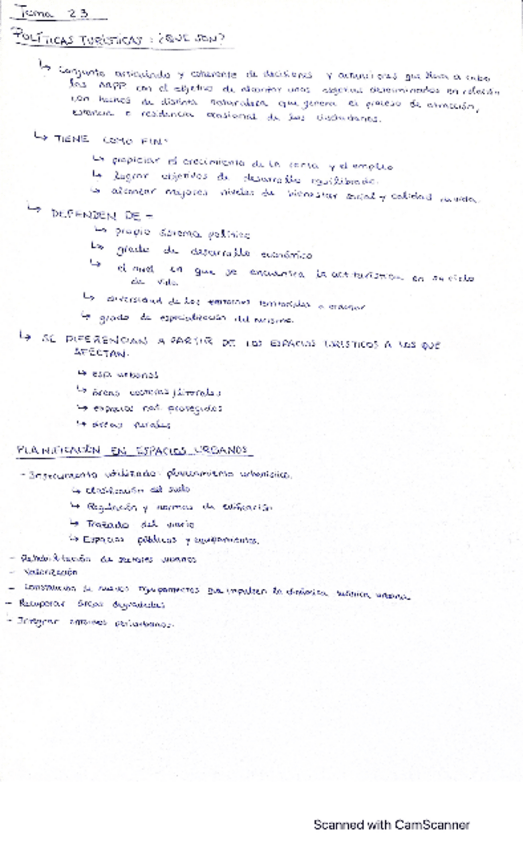 Tema 23
POLÍTICAS TURÍSTICAS: ¿QUE SON?
↳ Conjunto articulado y coherente de decisiones y actuaciones que llevan a cabo
las AAPP con el objetivo de alcanzar unos objetivos determinados en relación
con bienes de distinta naturaleza que genera el proceso de atracción,
estancia o residencia ocasional de los ciudadanos.
↳ TIENE COMO FIN:
↳ propiciar el crecimiento de la renta y el empleo
↳ lograr objetivos de desarrollo equilibrado.
↳ alcanzar mejores niveles de bienestar social y calidad de vida.
↳ DEPENDEN DE -
↳ propio sistema político
↳ grado de desarrollo económico
↳ el nivel en que se encuentra la act turística en su ciclo
de vida.
↳ diversidad de los entornos territoriales a
↳ grado de especialización del turismo.
↳ SE DIFERENCIAN A PARTIR DE LOS ESPACIOS TURISTICOS A LOS QUE
AFECTAN.
↳ esp. urbanos
↳ áreas costeras/litorales
↳ espacios nat protegidos
↳ áreas rurales
PLANIFICACIÓN EN ESPACIOS URBANOS
- Instrumento utilizado: planeamiento urbanístico.
↳ Clasificación del suelo
↳ Regulación y normas de edificación
↳ Trazado del viario
↳ Espacios públicos y equipamientos.
- Rehabilitación de sectores urbanos
- Valorización
- Construcción de nuevos equipamientos que impulsen la dinámica turística urbana
- Recuperar áreas degradadas
- Integrar entornos periurbanos.
Scanned with CamScanner